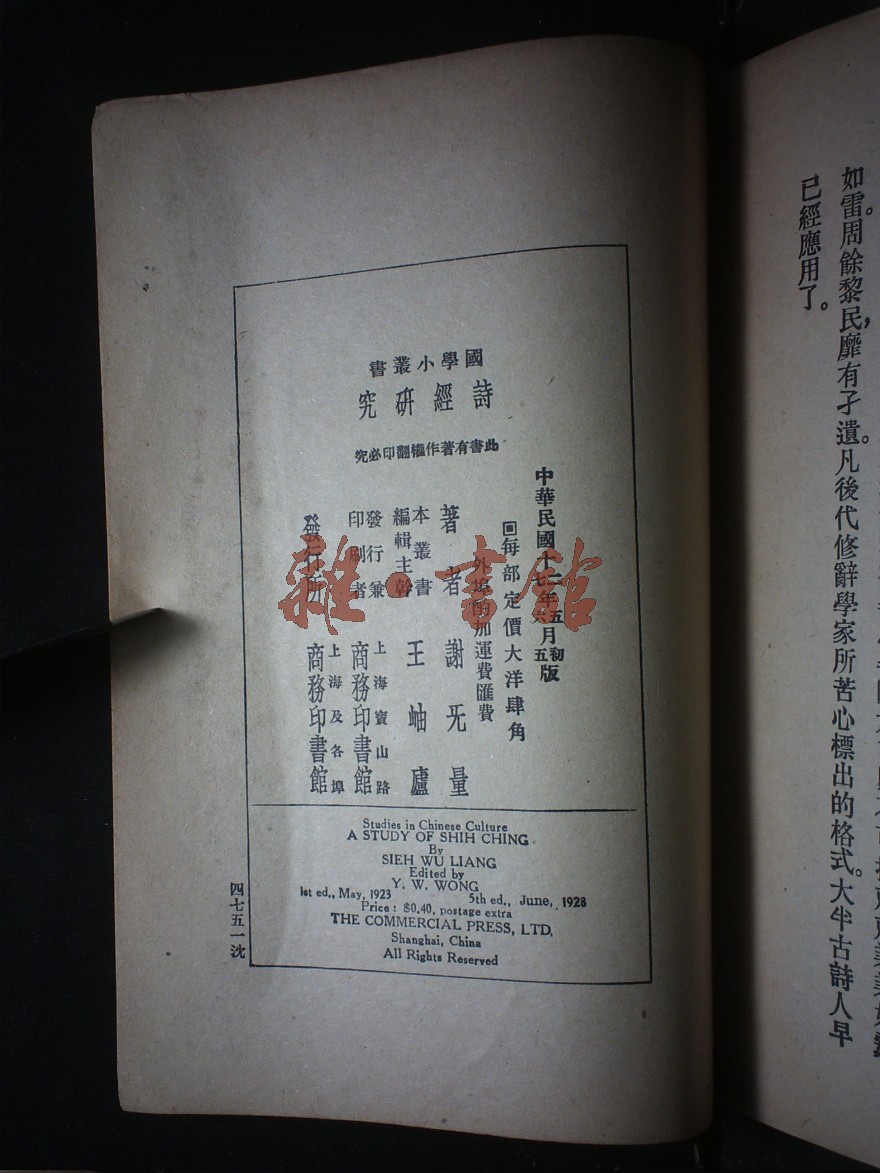 如雷。周餘黎民，靡有孑遺。凡後代修辭學家所苦心標出的格式。大半古詩人早
已經應用了。
書叢小學國
究研經詩
究必印翻權作著有書此
中華民國十二年五月初版
十七年六月五版
回每部定價大洋肆角
外埠酌加運費匯費
著者 謝无量
本叢書編輯主幹 王岫廬
發行兼印刷者 上海寶山路商務印書館
發行所 上海及各埠商務印書館
Studies in Chinese Culture
A STUDY OF SHIH CHING
By
SIEH WU LIANG
Edited by
Y. W. WONG
1st ed., May, 1923 5th ed., June, 1928
Price : $0.40, postage extra
THE COMMERCIAL PRESS, LTD.
Shanghai, China
All Rights Reserved
四七五一沈
雜·書館